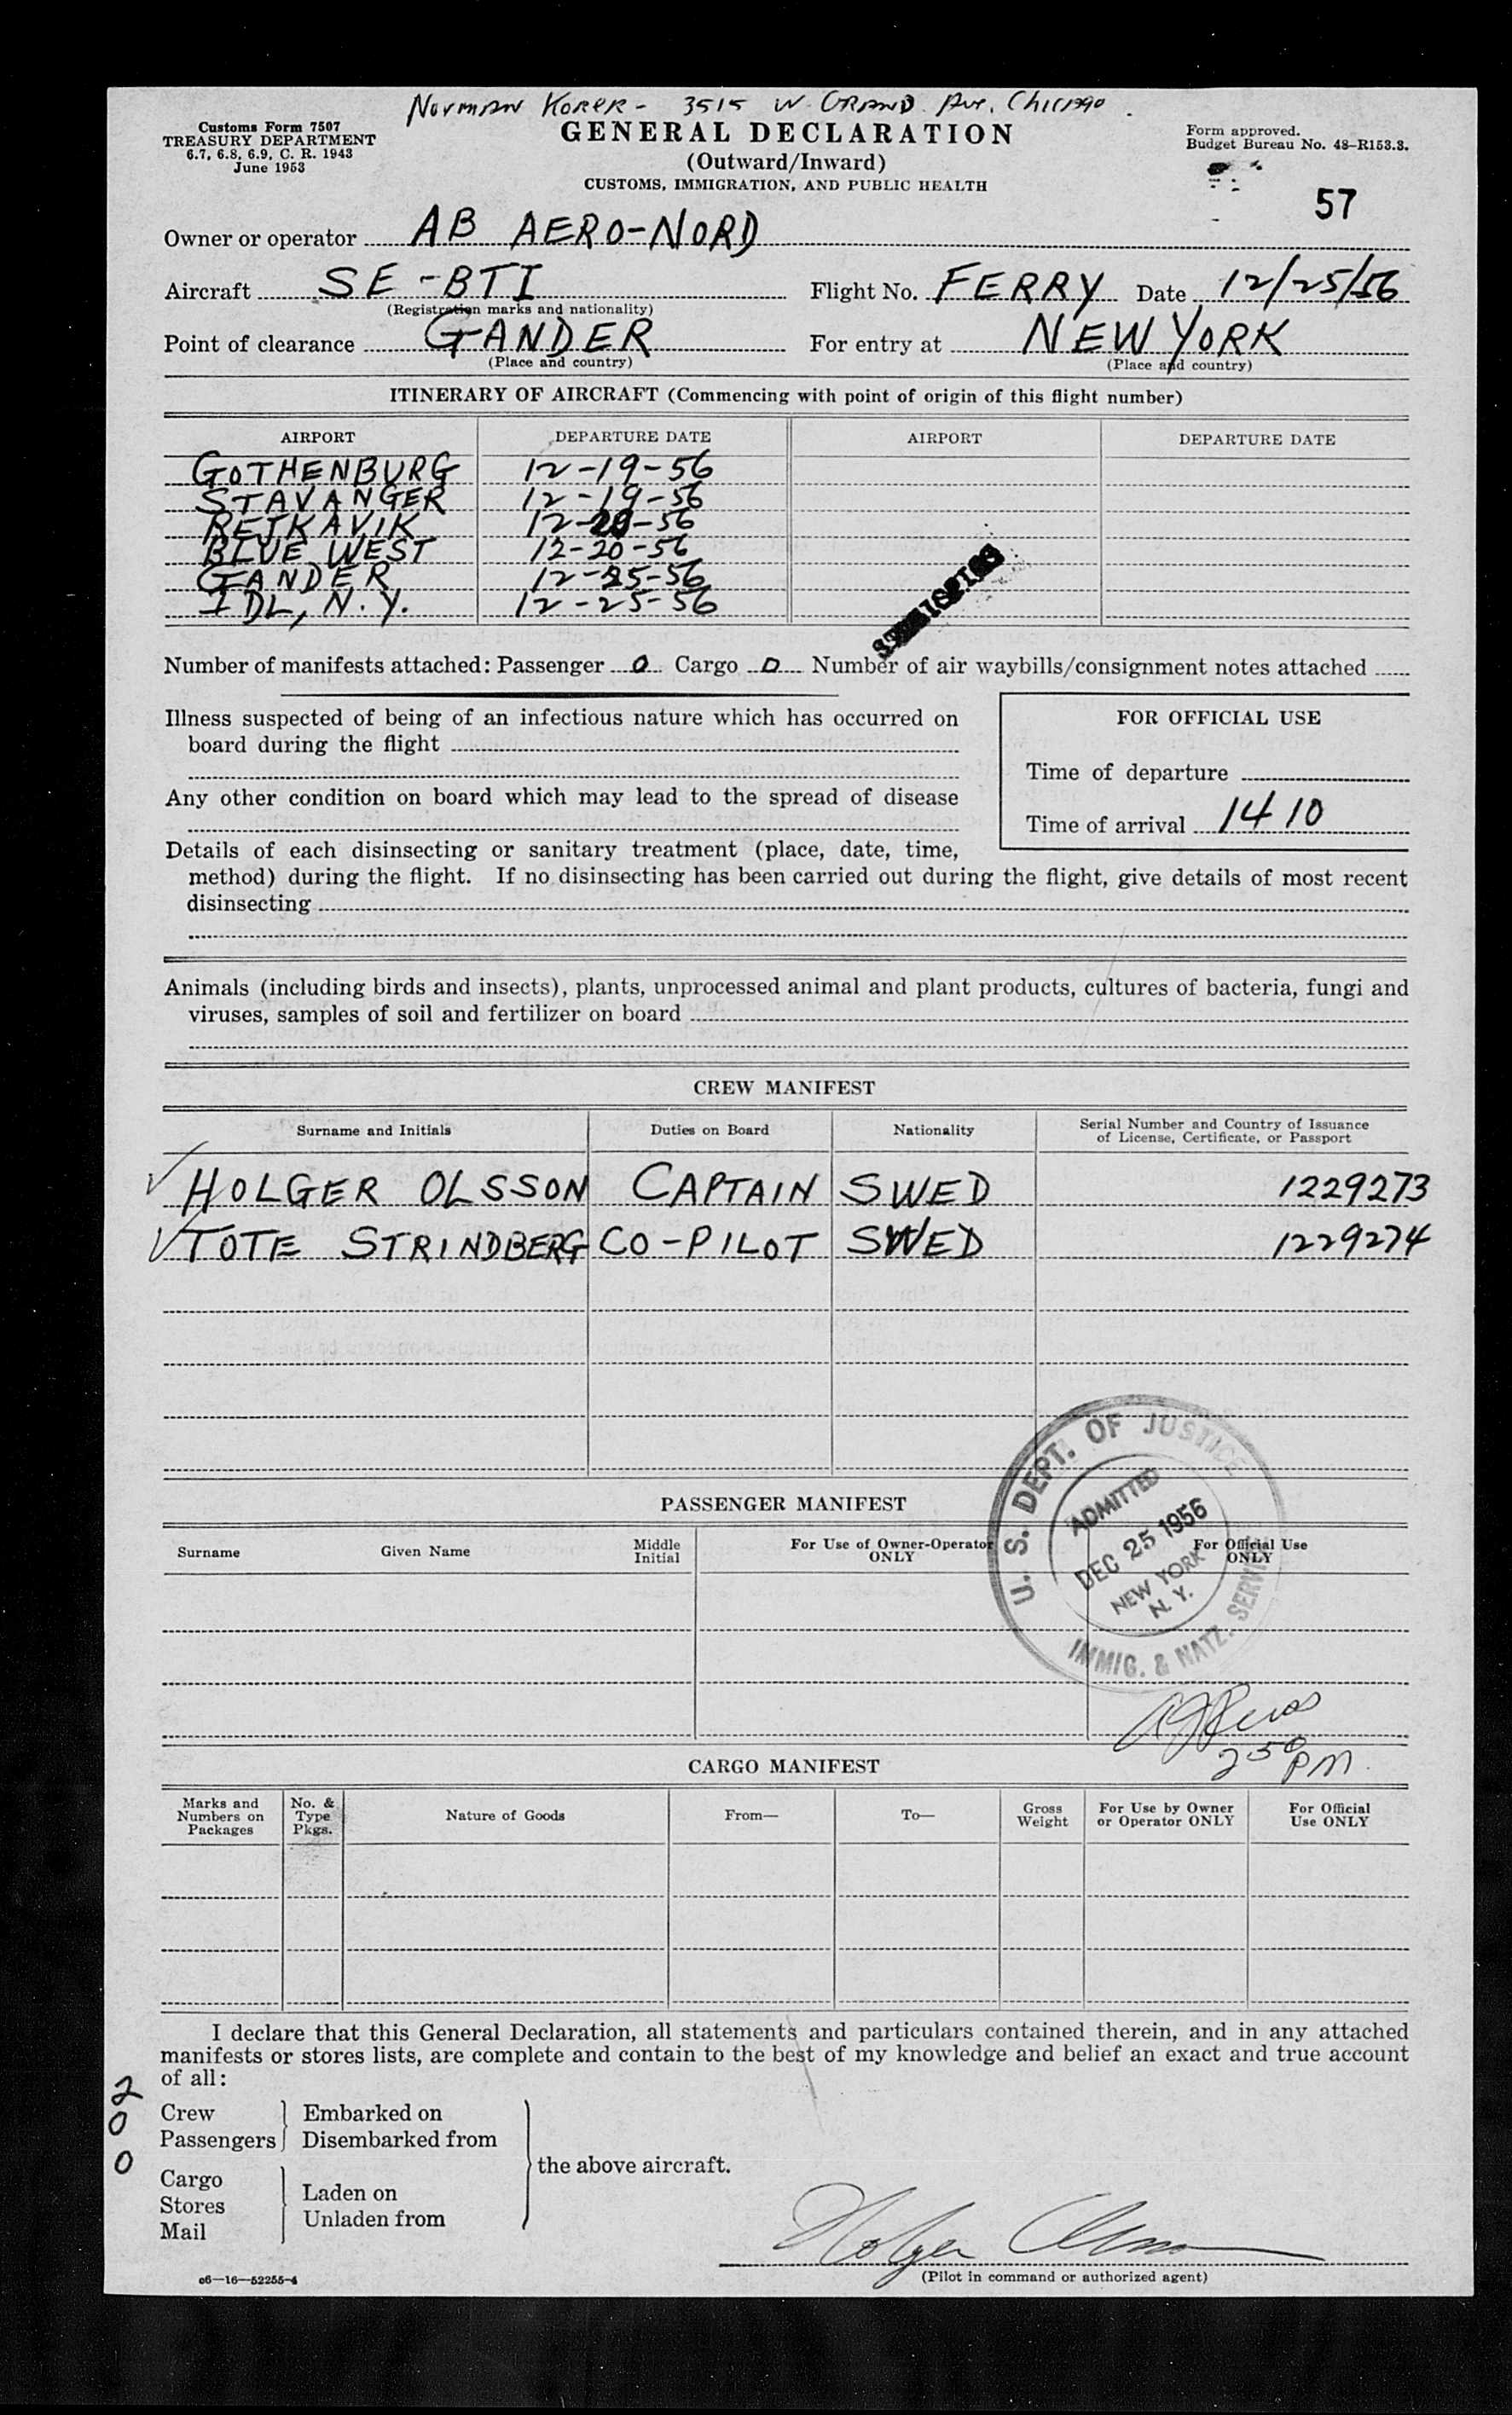 NORMAN KORER - 3515 W. GRAND Ave, Chicago.
Customs Form 7507
TREASURY DEPARTMENT
6.7, 6.8, 6.9, C. R. 1943
June 1953
GENERAL DECLARATION
(Outward/Inward)
CUSTOMS, IMMIGRATION, AND PUBLIC HEALTH
Form approved.
Budget Bureau No. 48-R153.3.
57
Owner or operator AB AERO-NORD
Aircraft SE-BTI Flight No. FERRY Date 12/25/56
(Registration marks and nationality)
Point of clearance GANDER For entry at NEW YORK
(Place and country) (Place and country)
ITINERARY OF AIRCRAFT (Commencing with point of origin of this flight number)
AIRPORT DEPARTURE DATE AIRPORT DEPARTURE DATE
GOTHENBURG 12-19-56
STAVANGER 12-19-56
REJKAVIK 12-20-56
BLUE WEST 12-20-56
GANDER 12-25-56
IDL, N.Y. 12-25-56
Number of manifests attached: Passenger 0 Cargo 0 Number of air waybills/consignment notes attached
Illness suspected of being of an infectious nature which has occurred on
board during the flight
Any other condition on board which may lead to the spread of disease
FOR OFFICIAL USE
Time of departure
Time of arrival 1410
Details of each disinsecting or sanitary treatment (place, date, time,
method) during the flight. If no disinsecting has been carried out during the flight, give details of most recent
disinsecting
Animals (including birds and insects), plants, unprocessed animal and plant products, cultures of bacteria, fungi and
viruses, samples of soil and fertilizer on board
CREW MANIFEST
Surname and Initials Duties on Board Nationality Serial Number and Country of Issuance
of License, Certificate, or Passport
HOLGER OLSSON CAPTAIN SWED 1229273
TOTE STRINDBERG CO-PILOT SWED 1229274
U. S. DEPT. OF JUSTICE
ADMITTED
DEC 25 1956
NEW YORK
N. Y.
IMMIG. & NATZ. SERVICE
PASSENGER MANIFEST
Surname Given Name Middle
Initial For Use of Owner-Operator
ONLY For Official Use
ONLY
250 PM
CARGO MANIFEST
Marks and
Numbers on
Packages No. &
Type
Pkgs. Nature of Goods From— To— Gross
Weight For Use by Owner
or Operator ONLY For Official
Use ONLY
I declare that this General Declaration, all statements and particulars contained therein, and in any attached
manifests or stores lists, are complete and contain to the best of my knowledge and belief an exact and true account
of all:
2 Crew Embarked on
0 Passengers Disembarked from
the above aircraft.
0 Cargo
Stores Laden on
Mail Unladen from
Holger Olsson
(Pilot in command or authorized agent)
c6—16—52255-4